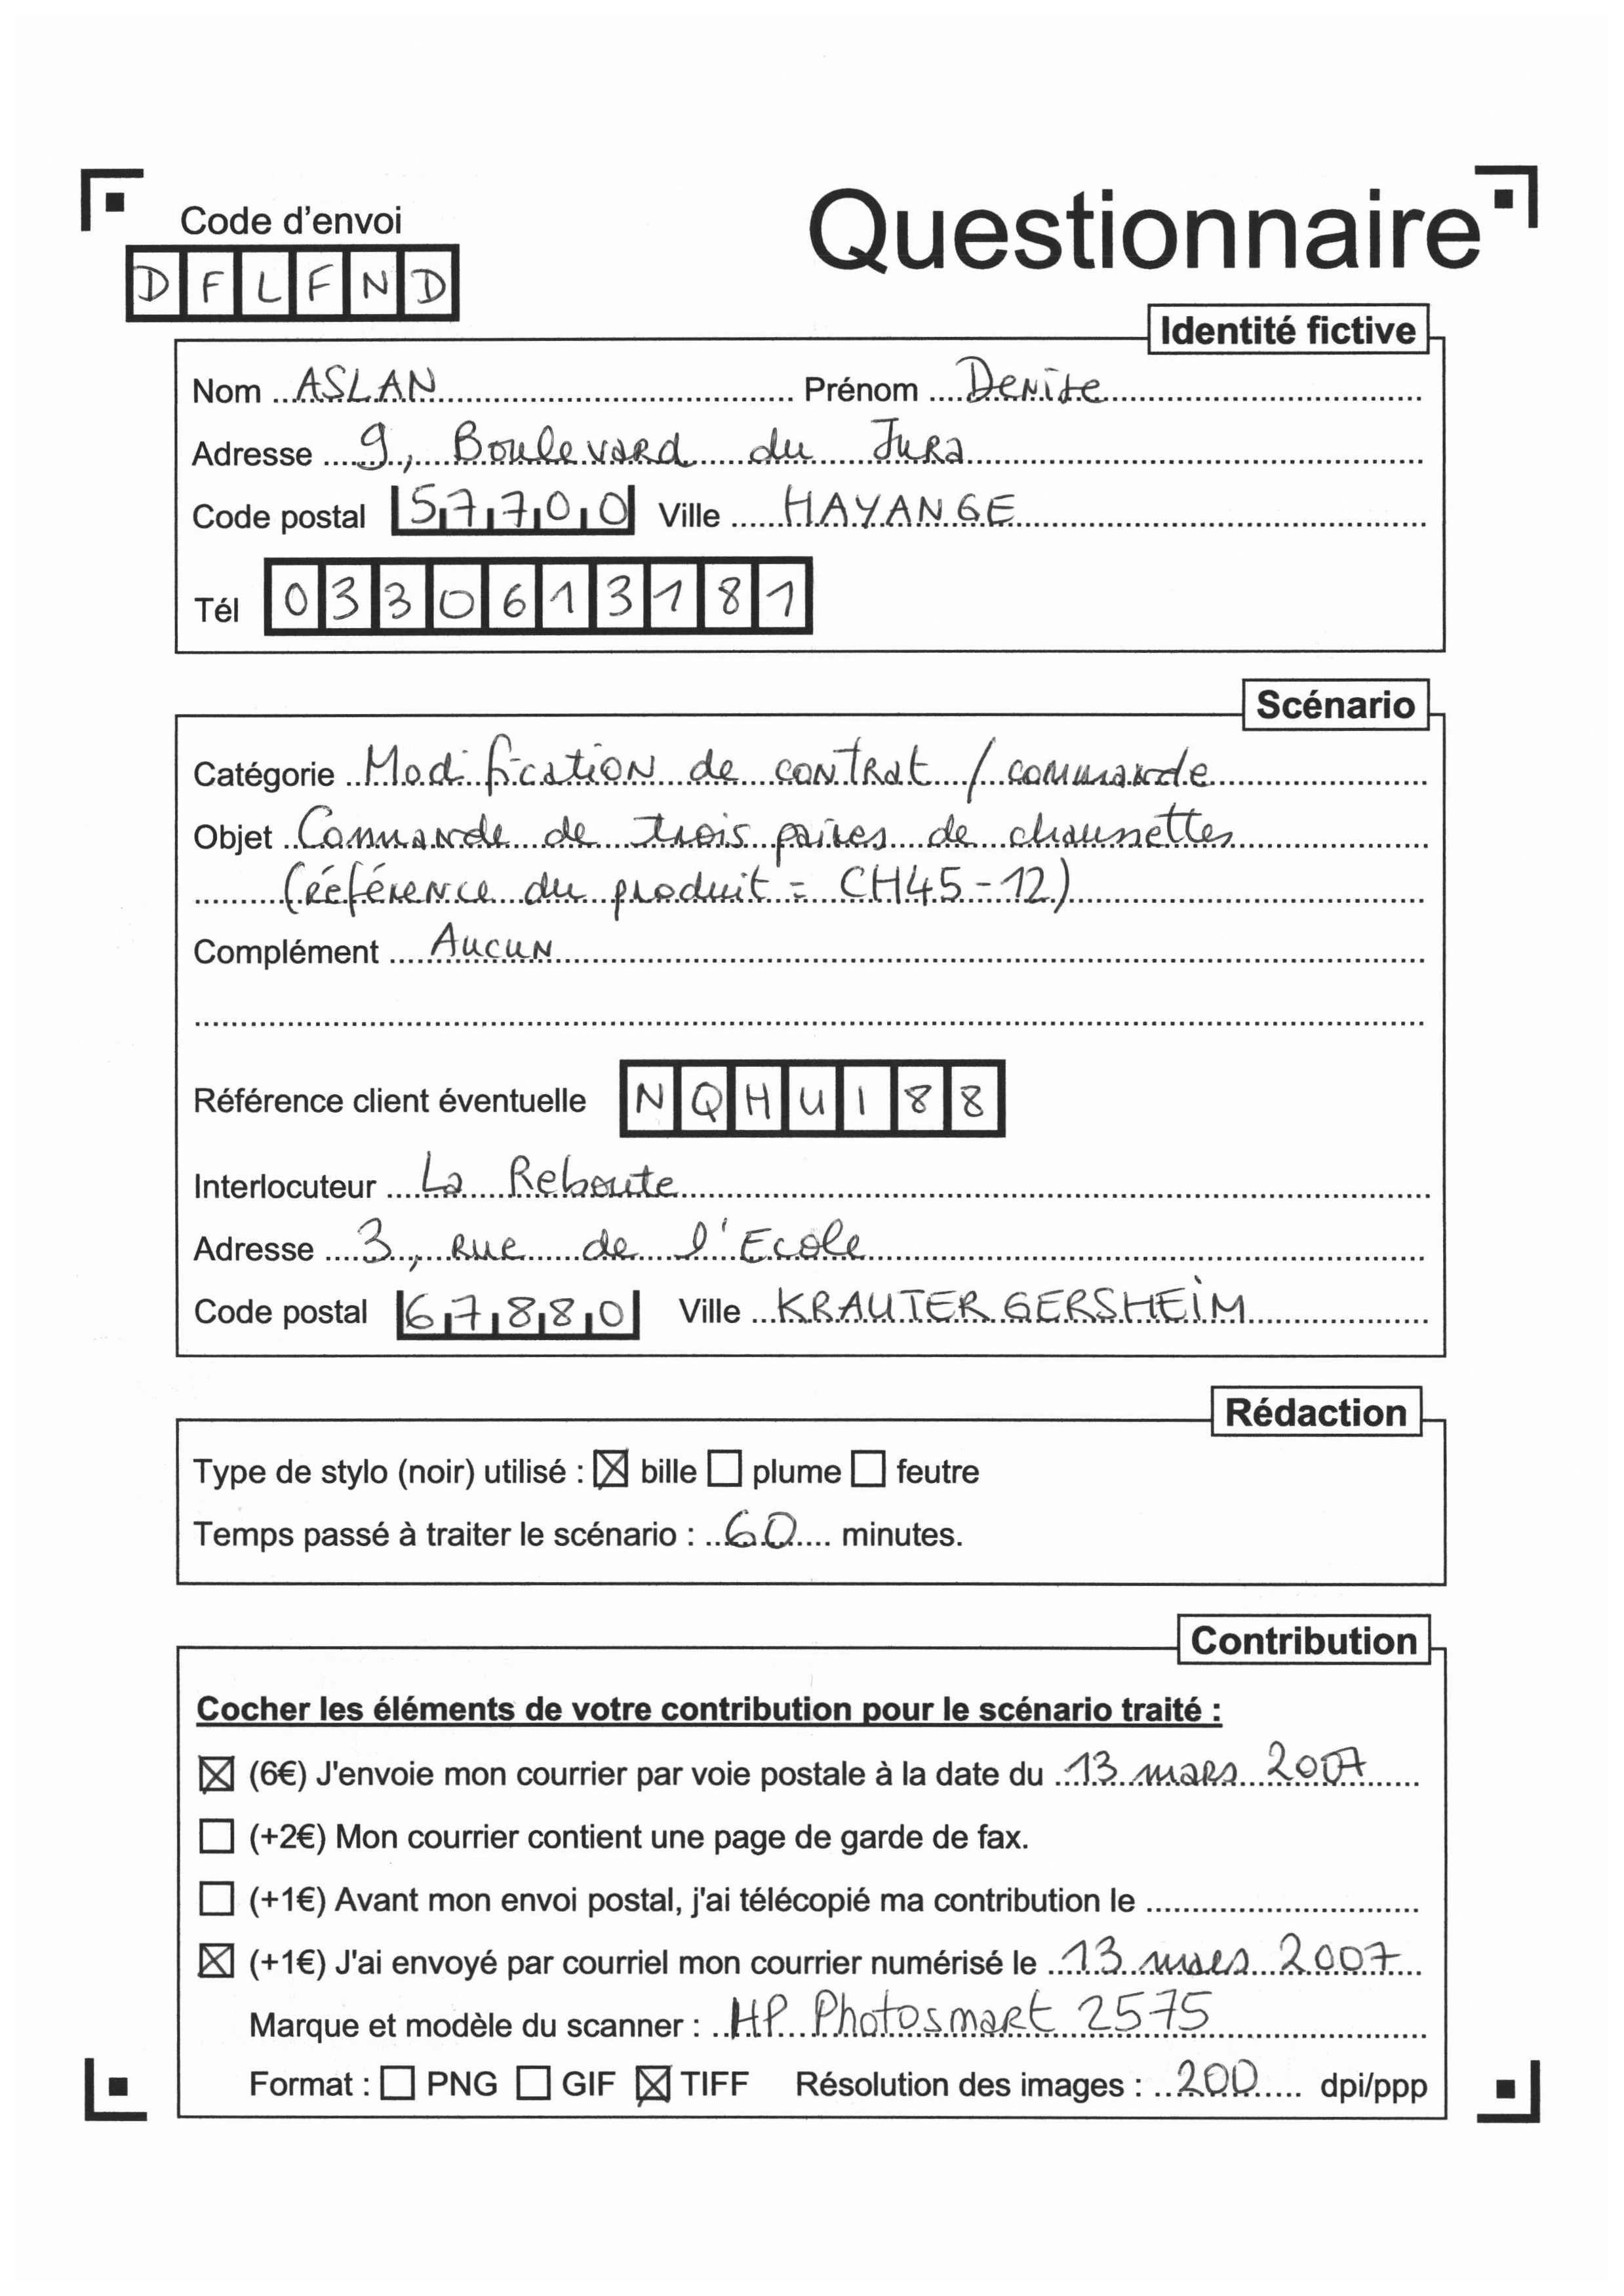 Code d'envoi
Questionnaire
DFLFND
Identité fictive
Nom ASLAN Prénom
Adresse 9, Boulevard du Jura
Code postal 57700 Ville HAYANGE
Tél 0330613181
Scénario
Catégorie Modification de contrat / commande
Objet Commande de trois paires de chaussettes
(référence du produit = CH45-12)
Complément Aucun
Référence client éventuelle NQHUI88
Interlocuteur La Reboute
Adresse 3, rue de l'Ecole
Code postal 67880 Ville KRAUTERGERSHEIM
Rédaction
Type de stylo (noir) utilisé : ☒ bille ☐ plume ☐ feutre
Temps passé à traiter le scénario : 60 minutes.
Contribution
Cocher les éléments de votre contribution pour le scénario traité :
☒ (6€) J'envoie mon courrier par voie postale à la date du 13 mars 2007
☐ (+2€) Mon courrier contient une page de garde de fax.
☐ (+1€) Avant mon envoi postal, j'ai télécopié ma contribution le
☒ (+1€) J'ai envoyé par courriel mon courrier numérisé le 13 mars 2007
Marque et modèle du scanner : HP Photosmart 2575
Format : ☐ PNG ☐ GIF ☒ TIFF Résolution des images : 200 dpi/ppp